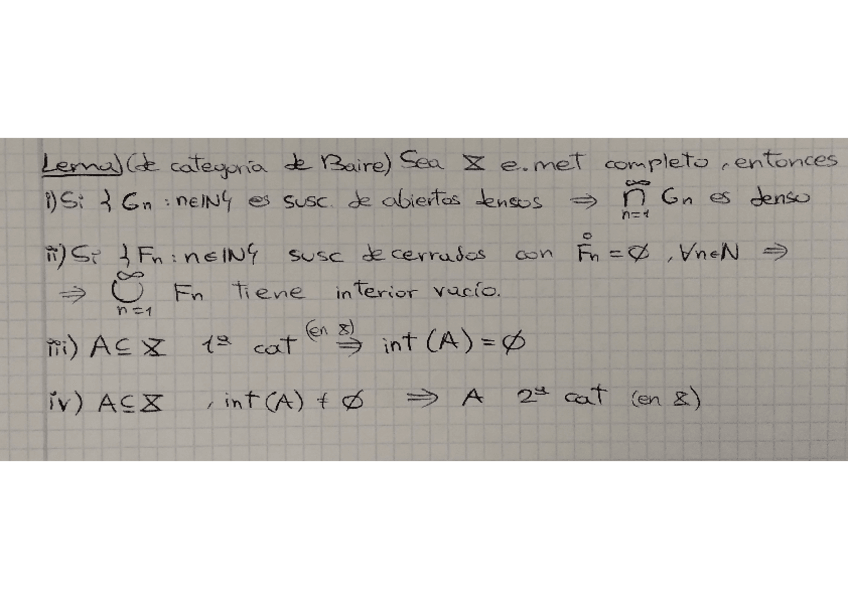 Lema) (de categoría de Baire) Sea X e.met completo, entonces
i) Si {Gn : n∈ℕ} es susc. de abiertos densos ⇒ ⋂_{n=1}^∞ Gn es denso
ii) Si {Fn : n∈ℕ} susc de cerrados con F̊n = ∅, ∀n∈N ⇒
⇒ ⋃_{n=1}^∞ Fn tiene interior vacío.
iii) A⊆X 1ª cat (en X) ⇒ int(A) = ∅
iv) A⊆X, int(A) ≠ ∅ ⇒ A 2ª cat (en X)